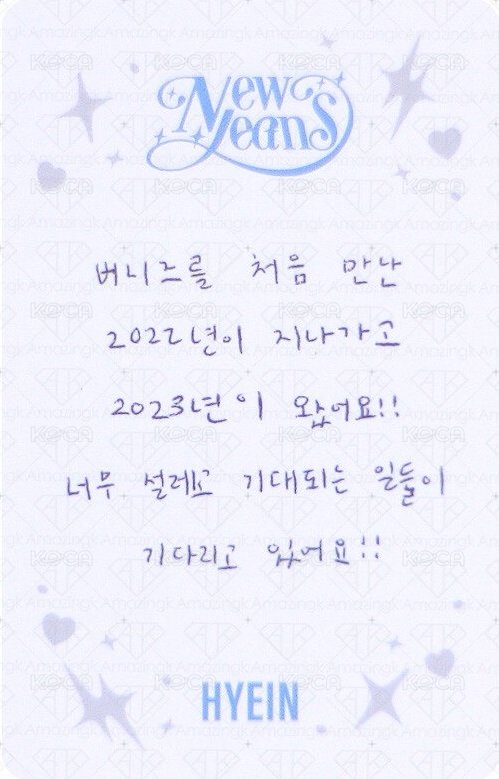 NewJeans
버니즈를 처음 만난
2022년이 지나가고
2023년이 왔어요!!
너무 설레고 기대되는 일들이
기다리고 있어요!!
HYEIN